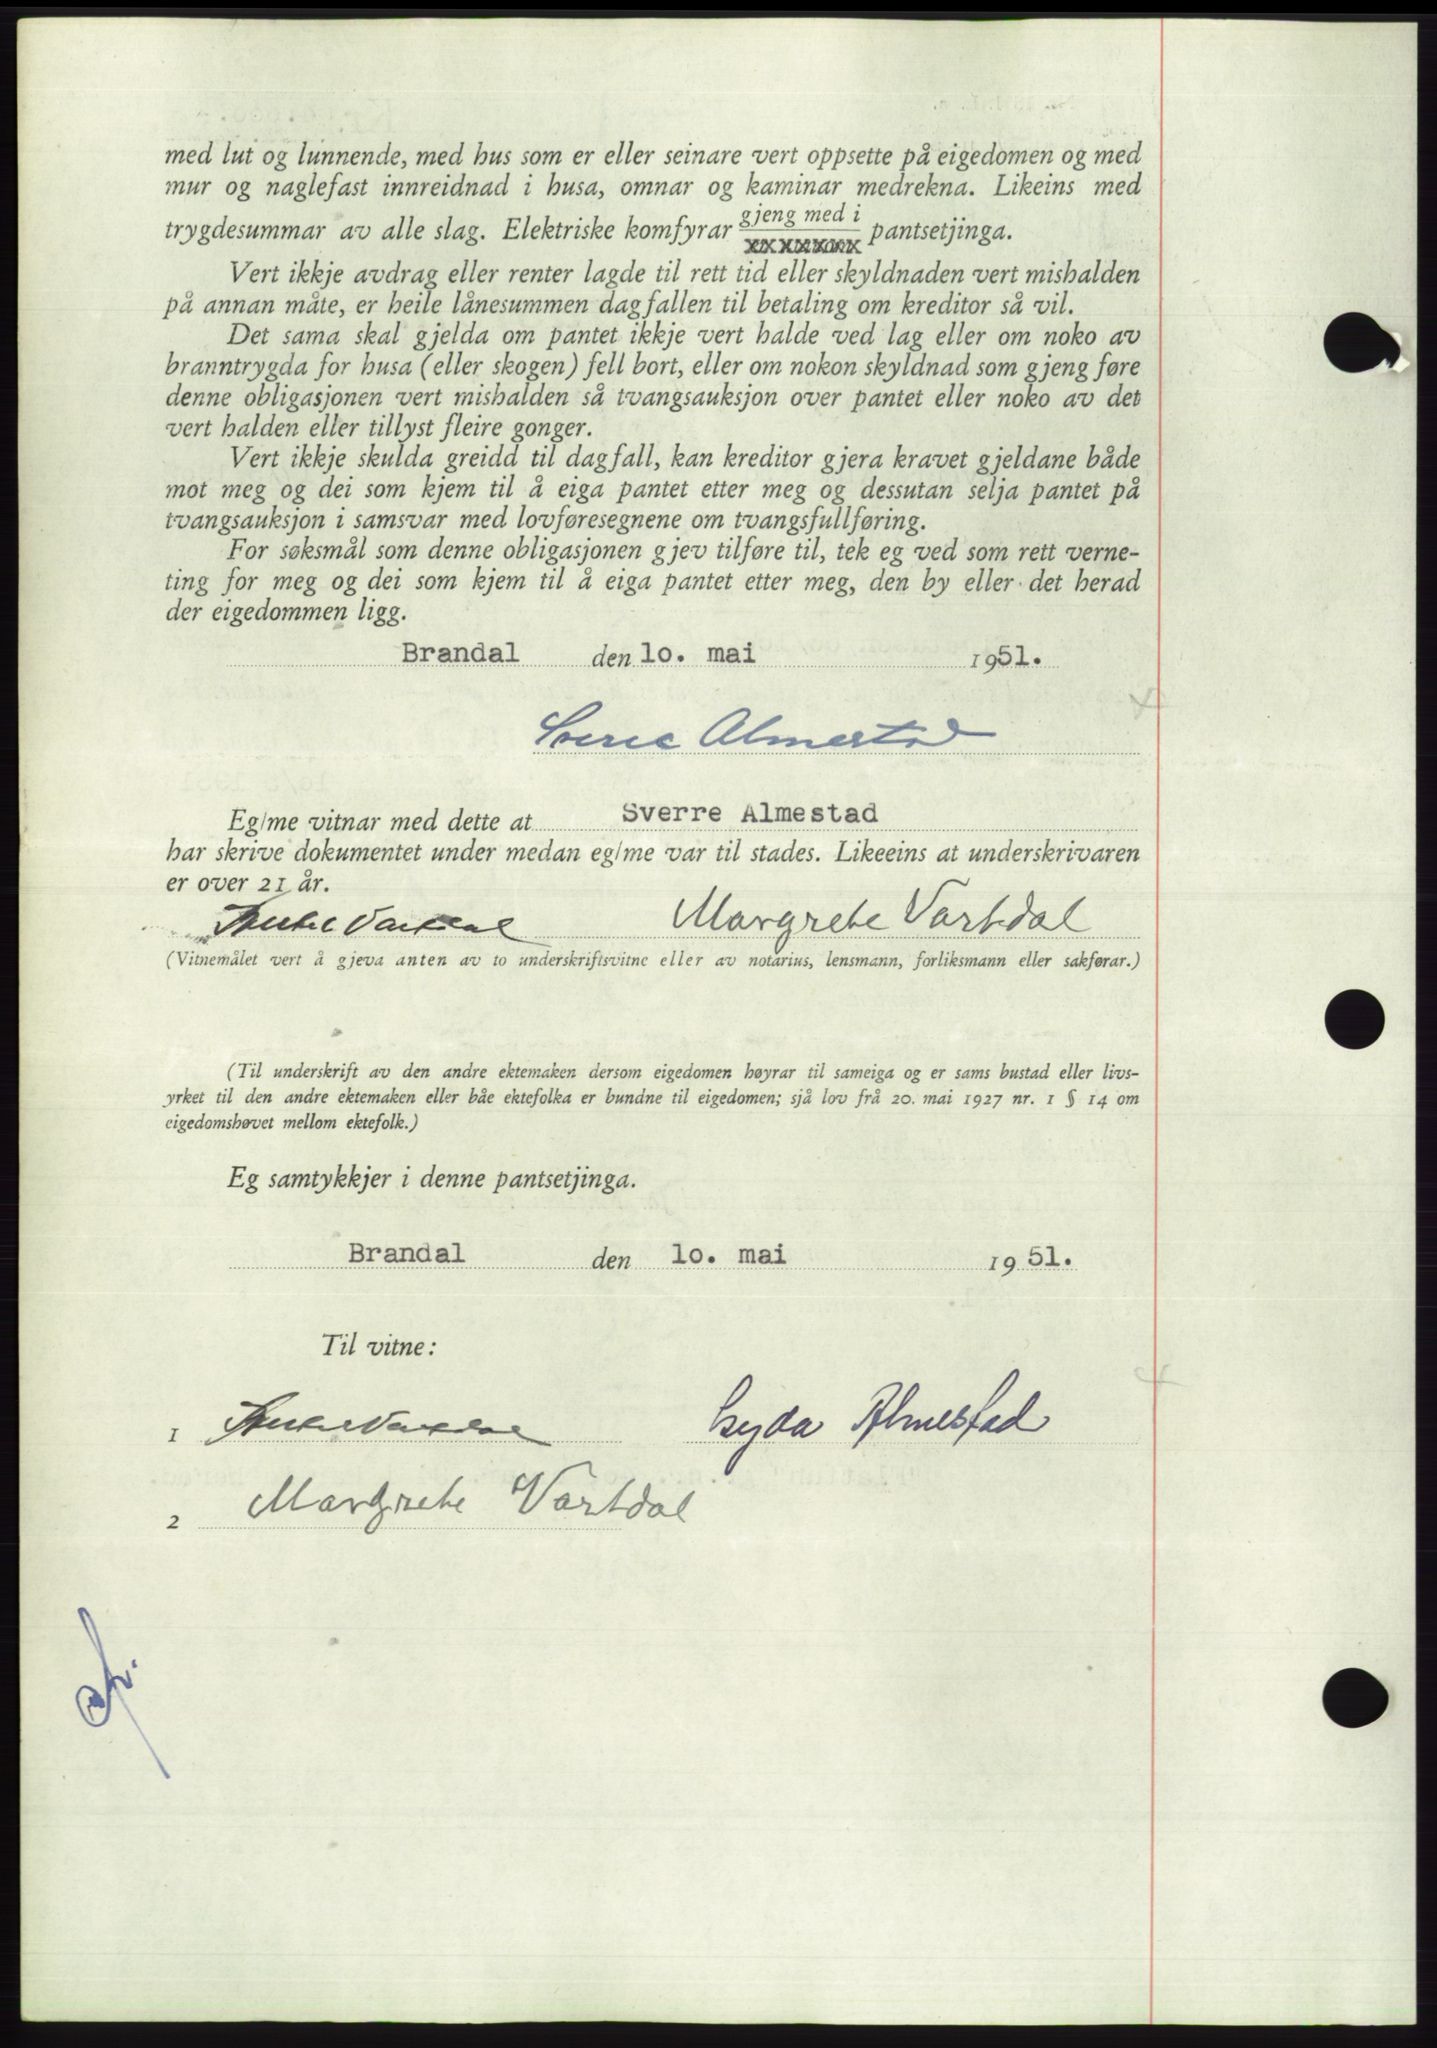 med lut og lunnende, med hus som er eller seinare vert oppsette på eigedomen og med
mur og naglefast innreidnad i husa, omnar og kaminar medrekna. Likeins med
trygdesummar av alle slag. Elektriske komfyrar gjeng med i pantsetjinga.
Vert ikkje avdrag eller renter lagde til rett tid eller skyldnaden vert mishalden
på annan måte, er heile lånesummen dagfallen til betaling om kreditor så vil.
Det sama skal gjelda om pantet ikkje vert halde ved lag eller om noko av
branntrygda for husa (eller skogen) fell bort, eller om nokon skyldnad som gjeng føre
denne obligasjonen vert mishalden så tvangsauksjon over pantet eller noko av det
vert halden eller tillyst fleire gonger.
Vert ikkje skulda greidd til dagfall, kan kreditor gjera kravet gjeldane både
mot meg og dei som kjem til å eiga pantet etter meg og dessutan selja pantet på
tvangsauksjon i samsvar med lovføresegnene om tvangsfullføring.
For søksmål som denne obligasjonen gjev tilføre til, tek eg ved som rett verne-
ting for meg og dei som kjem til å eiga pantet etter meg, den by eller det herad
der eigedommen ligg.
Brandal den 10. mai 1951.
Sverre Almestad
Eg/me vitnar med dette at Sverre Almestad
har skrive dokumentet under medan eg/me var til stades. Likeeins at underskrivaren
er over 21 år.
Vartdal Margrete Vartdal
(Vitnemålet vert å gjeva anten av to underskriftsvitne eller av notarius, lensmann, forliksmann eller sakførar.)
(Til underskrift av den andre ektemaken dersom eigedomen høyrar til sameiga og er sams bustad eller livs-
yrket til den andre ektemaken eller båe ektefolka er bundne til eigedomen; sjå lov frå 20. mai 1927 nr. 1 § 14 om
eigedomshøvet mellom ektefolk.)
Eg samtykkjer i denne pantsetjinga.
Brandal den 10. mai 1951.
Til vitne:
1 Vartdal Gyda Almestad
2 Margrete Vartdal